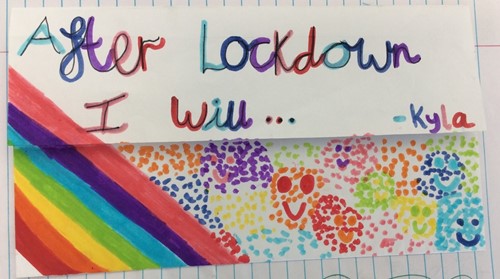 After Lockdown
I Will... -Kyla